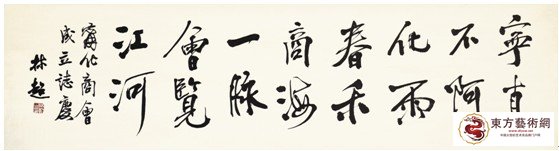 寧直
不阿
化雨
春禾
商海
一脉
會覽
江河
甯化商會
成立誌慶
林超
東方藝術網